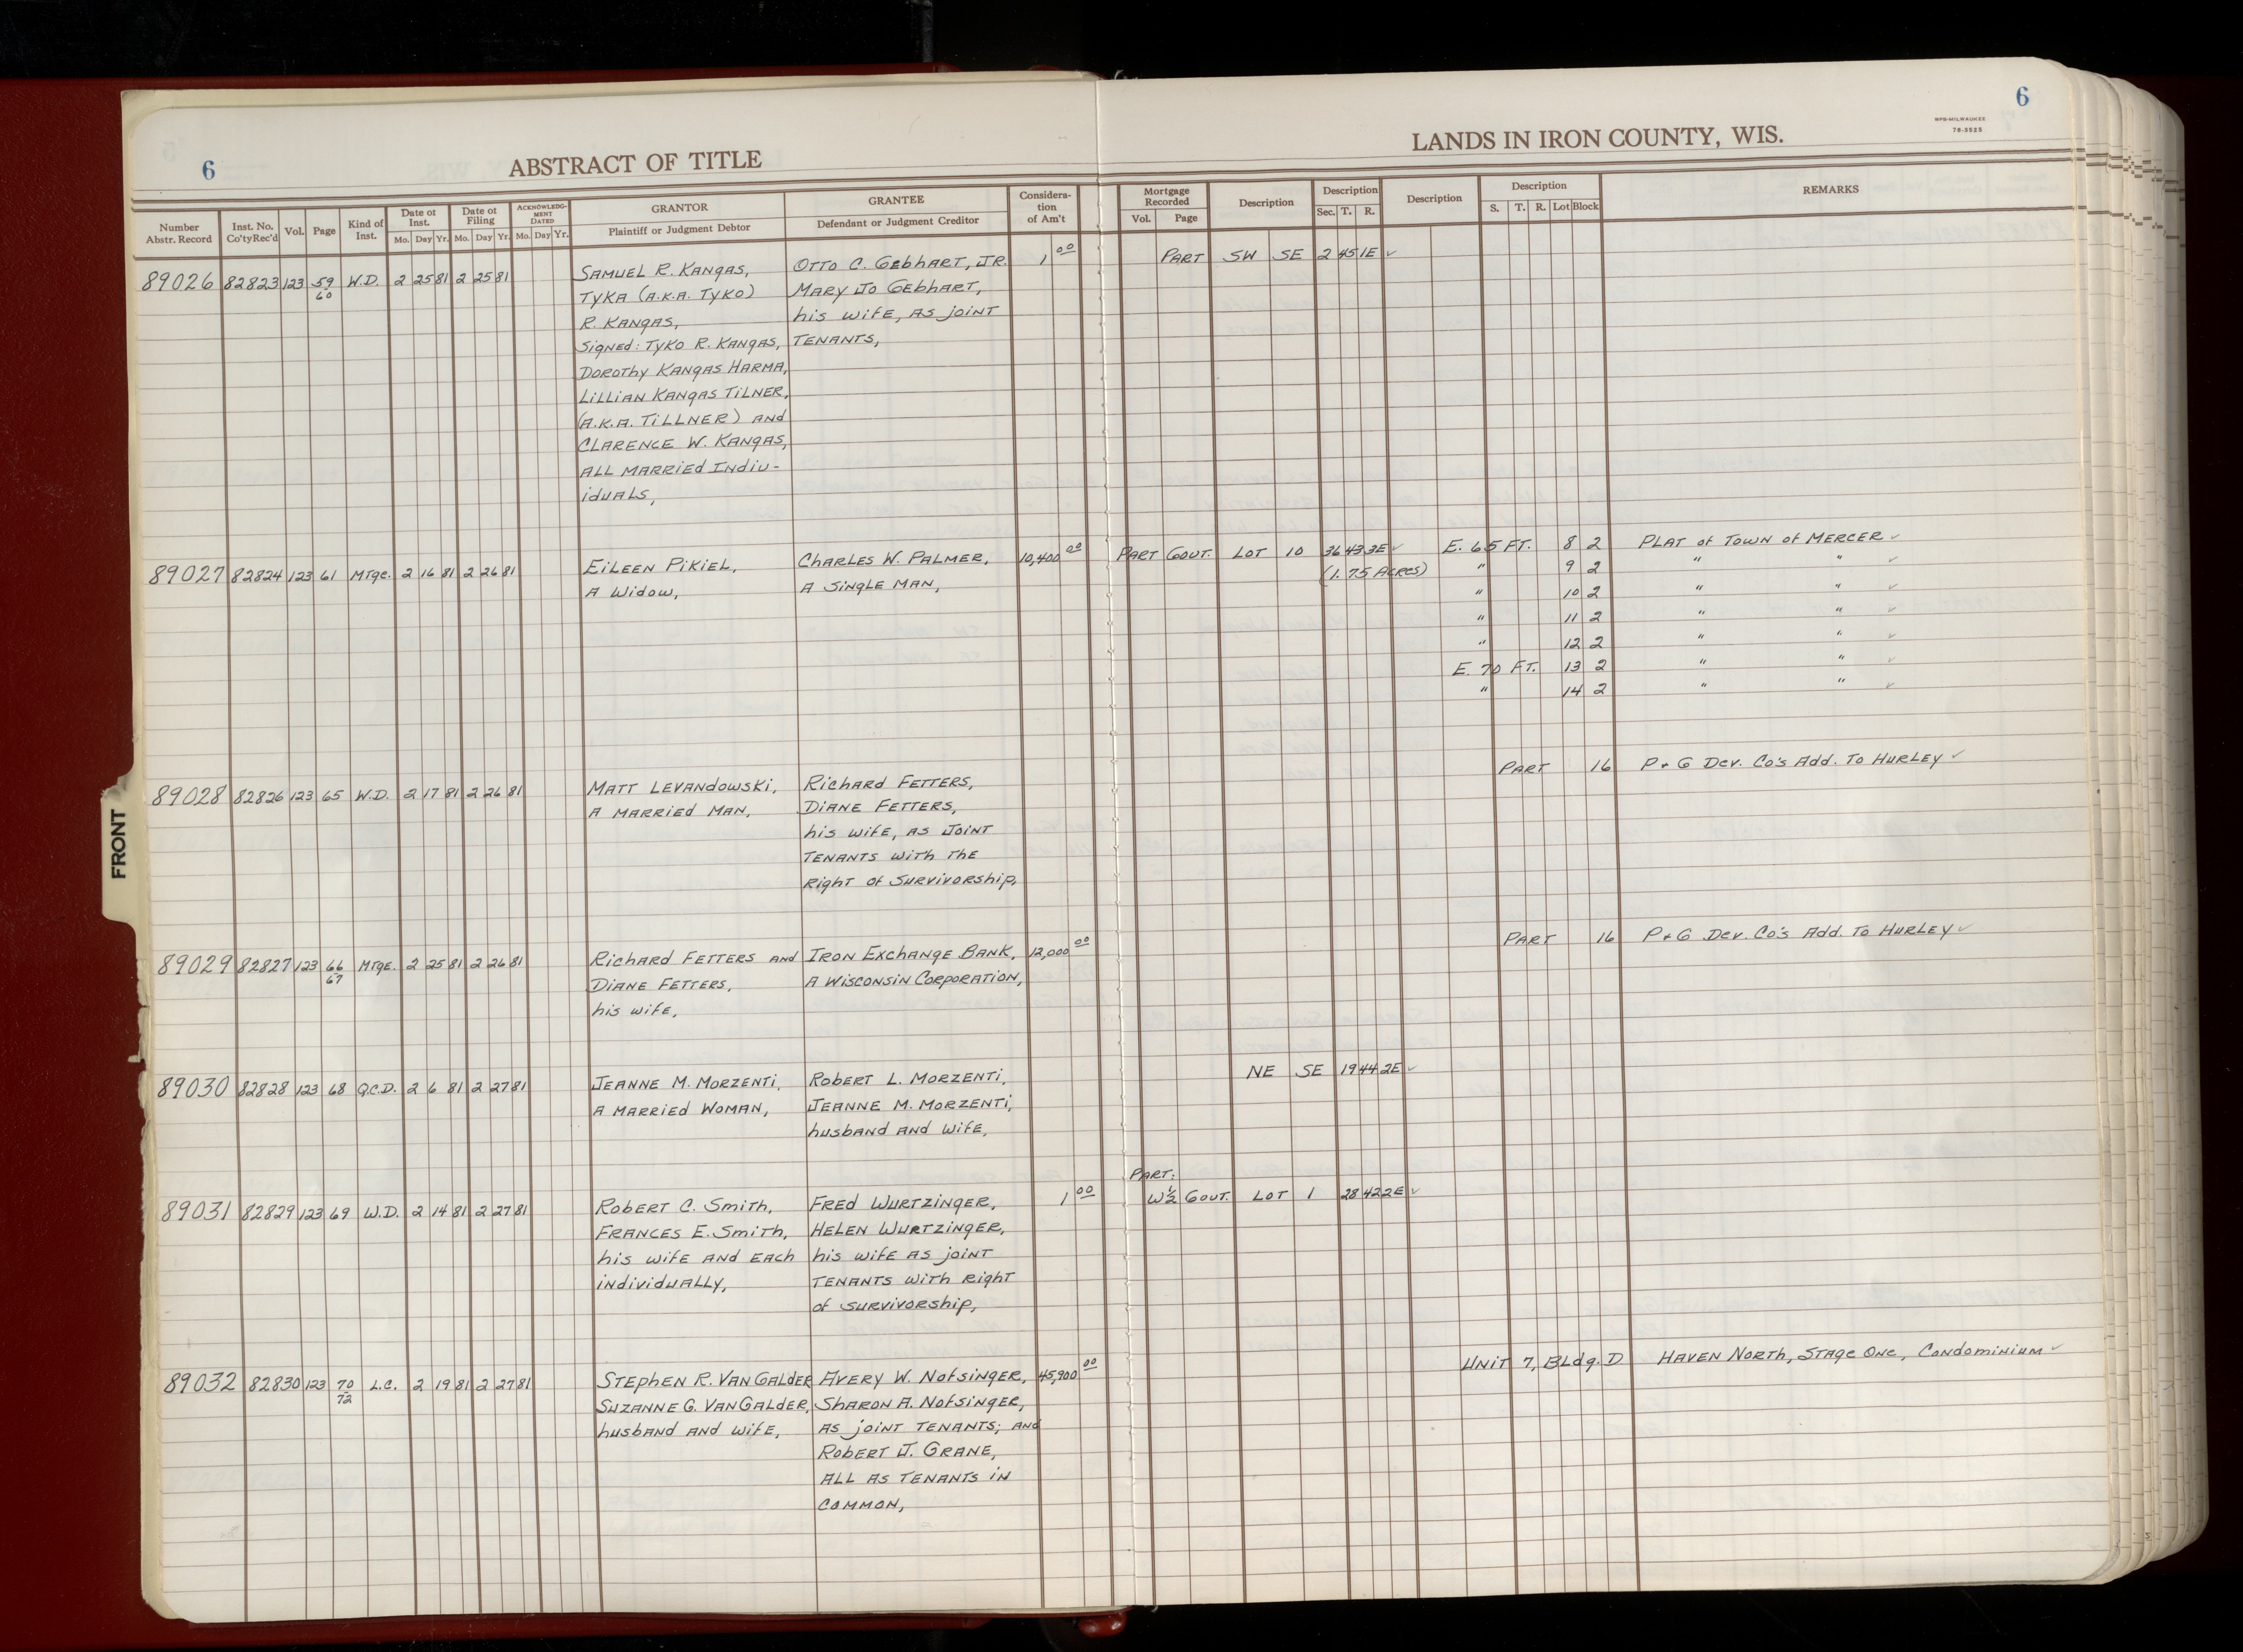 6
ABSTRACT OF TITLE
LANDS IN IRON COUNTY, WIS.
6
WPB-MILWAUKEE
78-3525
Number Abstr. Record | Inst. No. Co'tyRec'd | Vol. | Page | Kind of Inst. | Date of Inst. Mo. Day Yr. | Date of Filing Mo. Day Yr. | ACKNOWLEDGMENT DATED Mo. Day Yr. | GRANTOR Plaintiff or Judgment Debtor | GRANTEE Defendant or Judgment Creditor | Consideration of Am't | Mortgage Recorded Vol. Page | Description | Description Sec. T. R. | Description | Description S. T. R. Lot Block | REMARKS
89026 82823 123 59/60 W.D. 2 25 81 2 25 81 Samuel R. Kangas, Otto C. Gebhart, Jr. 1 00 Part SW SE 2 45 1E ✓
Tyka (A.K.A. Tyko) Mary Jo Gebhart,
R. Kangas, his wife, as joint
Signed: Tyko R. Kangas, tenants,
Dorothy Kangas Harma,
Lillian Kangas Tilner,
(A.K.A. Tillner) and
Clarence W. Kangas,
all married indiv-
iduals,
89027 82824 123 61 Mtge. 2 16 81 2 26 81 Eileen Pikiel, Charles W. Palmer, 10,400 00 Part Govt. Lot 10 36 43 3E ✓ E. 65 Ft. 8 2 Plat of Town of Mercer ✓
A Widow, A Single Man, (1.75 Acres) " 9 2 " " ✓
" 10 2 " " ✓
" 11 2 " " ✓
" 12 2 " " ✓
E. 70 Ft. 13 2 " " ✓
" 14 2 " " ✓
89028 82826 123 65 W.D. 2 17 81 2 26 81 Matt Levandowski, Richard Fetters, Part 16 P + G Dev. Co's Add. To Hurley ✓
A married man, Diane Fetters,
his wife, as joint
tenants with the
right of survivorship,
89029 82827 123 66/67 Mtge. 2 25 81 2 26 81 Richard Fetters and Iron Exchange Bank, 12,000 00 Part 16 P + G Dev. Co's Add. To Hurley ✓
Diane Fetters, A Wisconsin Corporation,
his wife,
89030 82828 123 68 Q.C.D. 2 6 81 2 27 81 Jeanne M. Morzenti, Robert L. Morzenti, NE SE 19 44 2E ✓
A married woman, Jeanne M. Morzenti,
husband and wife,
Part:
89031 82829 123 69 W.D. 2 14 81 2 27 81 Robert C. Smith, Fred Wurtzinger, 1 00 W½ Govt. Lot 1 28 42 2E ✓
Frances E. Smith, Helen Wurtzinger,
his wife and each his wife as joint
individually, tenants with right
of survivorship,
89032 82830 123 70/72 L.C. 2 19 81 2 27 81 Stephen R. VanGalder Avery W. Nofsinger, 45,900 00 Unit 7, Bldg. D Haven North, Stage One, Condominium ✓
Suzanne G. VanGalder, Sharon A. Nofsinger,
husband and wife, as joint tenants; and
Robert J. Grane,
all as tenants in
common,
FRONT